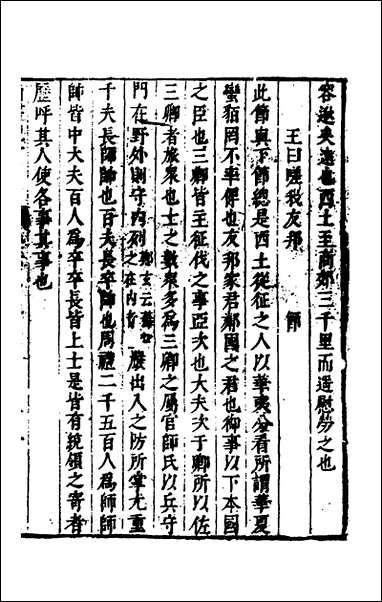 容逖矣遠也西土至商郊三千里而遥慰勞之也
王曰嗟我友邦 節
此節與下節總是西土從征之人以華夷分看所謂華夏
蠻貊罔不率俾也友邦家君鄰國之君也御事以下本國
之臣也三卿皆主征伐之事亞次也大夫次于卿所以佐
三卿者旅衆也士之數衆多爲三卿之屬官師氏以兵守
門在野外則守内列鄭玄云蕃營之在内者嚴出入之防所掌尤重
千夫長師帥也百夫長卒帥也周禮二千五百人爲師師
帥皆中大夫百人爲卒卒長皆上士是皆有統領之寄者
歷呼其人使各事其事也